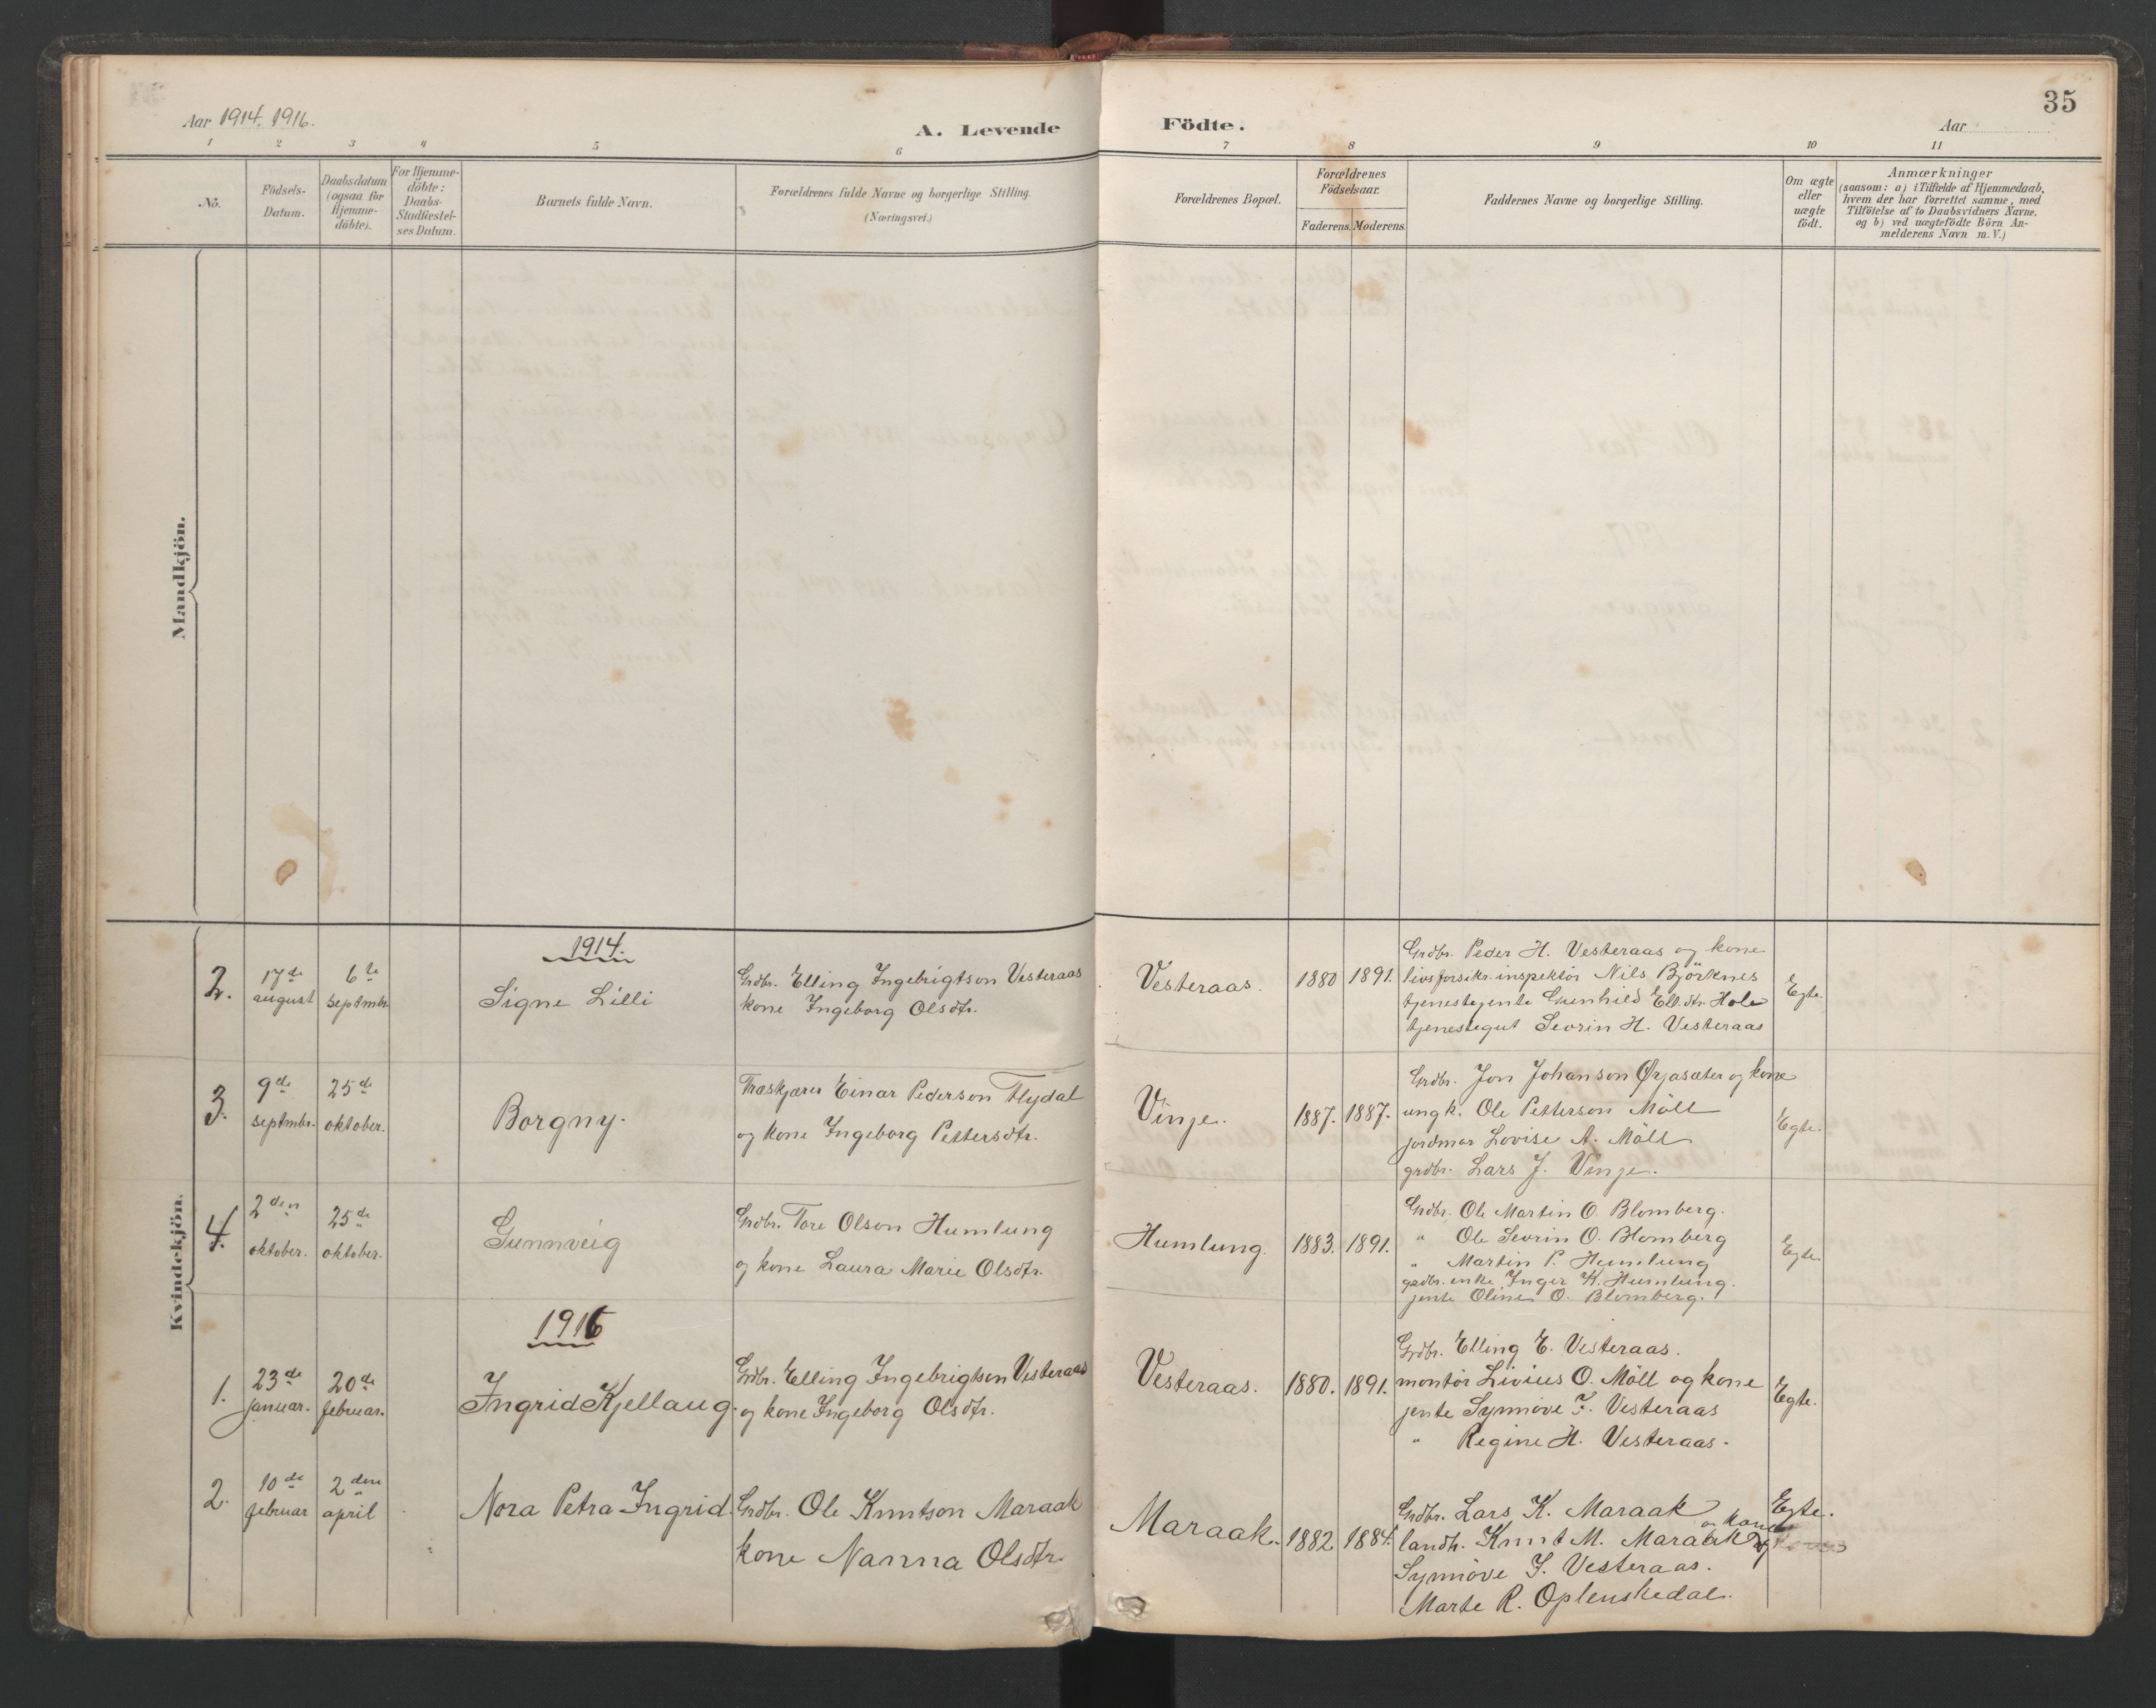 Aar 1914. 1916.
A. Levende
Födte.
Aar
35
1 2 3 4 5 6 7 8 9 10 11
No.
Födsels-
Datum.
Daabsdatum
(ogsaa for
Hjemme-
döbte).
For Hjemme-
döbte:
Daabs-
Stadfæstel-
ses Datum.
Barnets fulde Navn.
Forældrenes fulde Navne og borgerlige Stilling.
(Næringsvei.)
Forældrenes Bopæl.
Forældrenes
Födselsaar.
Faderens. Moderens.
Faddernes Navne og borgerlige Stilling.
Om ægte
eller
uægte
födt.
Anmærkninger
(saasom: a) i Tilfælde af Hjemmedaab,
hvem der har forrettet samme, med
Tilföielse af to Daabsvidners Navne.
og b) ved uægtefödte Börn An-
melderens Navn m. V.)
Mandkjön.
Kvindekjön.
1914.
2.
17de
august
6te
septmbr.
Signe Lilli
Grdbr. Elling Ingebrigtson Vesteraas
kone Ingeborg Olsdtr.
Vesteraas.
1880
1891.
Grdbr. Peder H. Vesteraas og kone
livsforsikr. inspektör Nils Björknes
tjenestejente Gunhild Ell.dtr. Hole
tjenestegut Sevrin H. Vesteraas
Egte.
3.
9de
septmbr.
25de
oktober.
Borgny.
Træskjærer Einar Pederson Flydal
og kone Ingeborg Pettersdtr.
Vinje.
1887.
1887.
Grdbr. Jon Johanson Ørjasæter og kone
ungk. Ole Petterson Möll
jordmor Lovise A. Möll
grdbr. Lars J. Vinje.
Egte.
4.
2den
oktober.
25de
oktober.
Gunnveig
Grdbr. Tore Olson Humlung
og kone Laura Marie Olsdtr.
Humlung.
1883.
1891.
Grdbr. Ole Martin O. Blomberg.
" Ole Sevrin O. Blomberg
" Martin P. Humlung
gardbr. enke Inger K. Humlung.
jente Oline O. Blomberg.
Egte.
1916
1.
23de
januar.
20de
februar.
Ingrid Kjellaug.
Grdbr. Elling Ingebrigtson Vesteraas
og kone Ingeborg Olsdtr.
Vesteraas.
1880.
1891.
Grdbr. Elling E. Vesteraas.
montör Livius O. Möll og kone
jente Synnöve I. Vesteraas
" Regine H. Vesteraas.
Egte.
2.
10de
februar
2den
april
Nora Petra Ingrid.
Grdbr. Ole Knutson Maraak
kone Nanna Olsdtr.
Maraak.
1882
1884.
Grdbr. Lars K. Maraak og kone
landh. Knut M. Maraak og
Synnöve I. Vesteraas.
Marte R. Oplenskedal.
Egte.